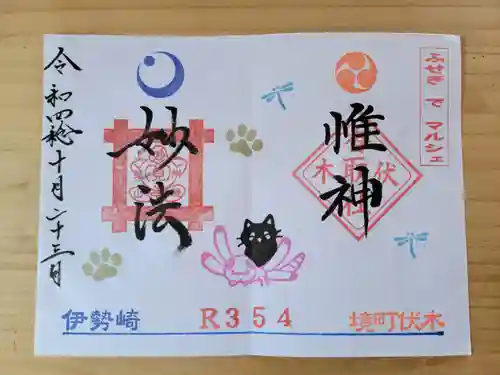 ふせぎ で マルシェ
惟神
妙法
令和四年十月二十三日
伊勢崎
R354
境町伏木